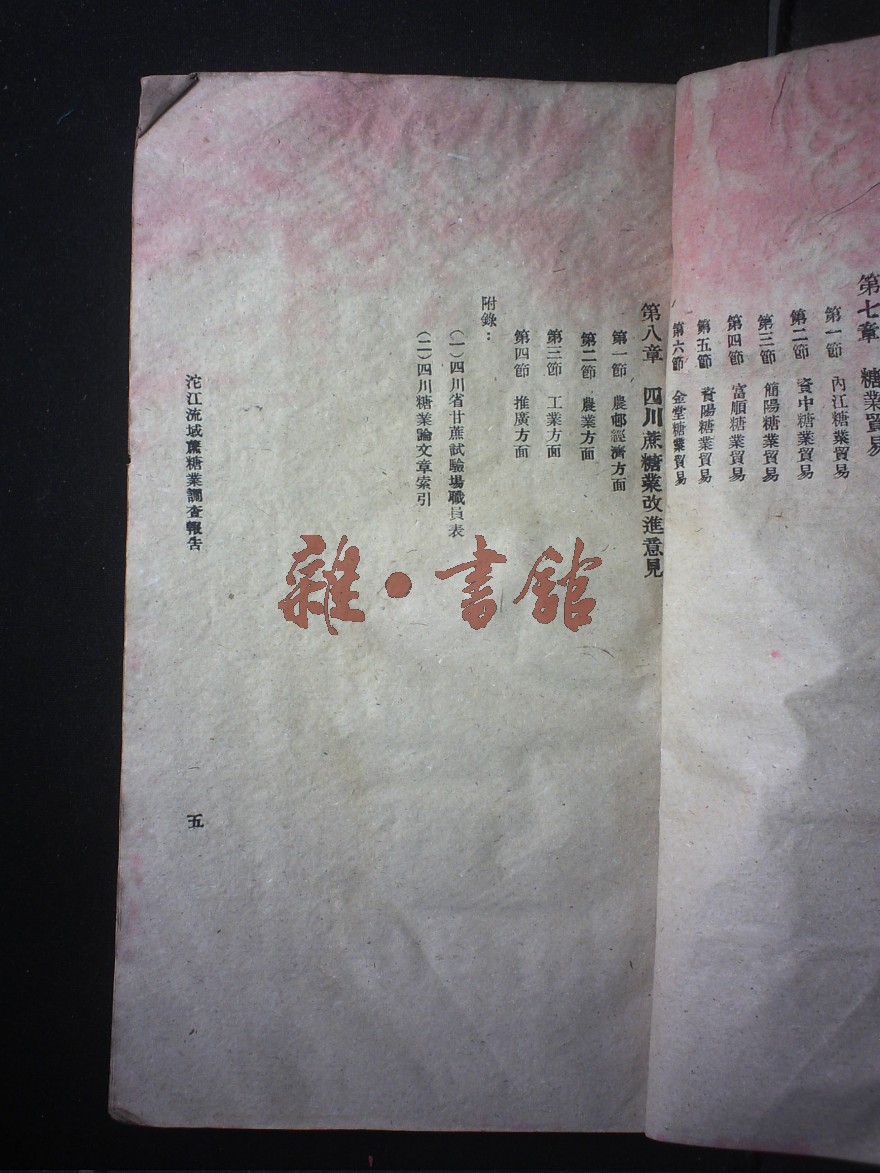 第七章 糖業貿易
第一節 內江糖業貿易
第二節 資中糖業貿易
第三節 簡陽糖業貿易
第四節 富順糖業貿易
第五節 資陽糖業貿易
第六節 金堂糖業貿易
第八章 四川蔗糖業改進意見
第一節 農邨經濟方面
第二節 農業方面
第三節 工業方面
第四節 推廣方面
附錄：
（一）四川省甘蔗試驗場職員表
（二）四川糖業論文章索引
沱江流域蔗糖業調查報告
五
雜·書館